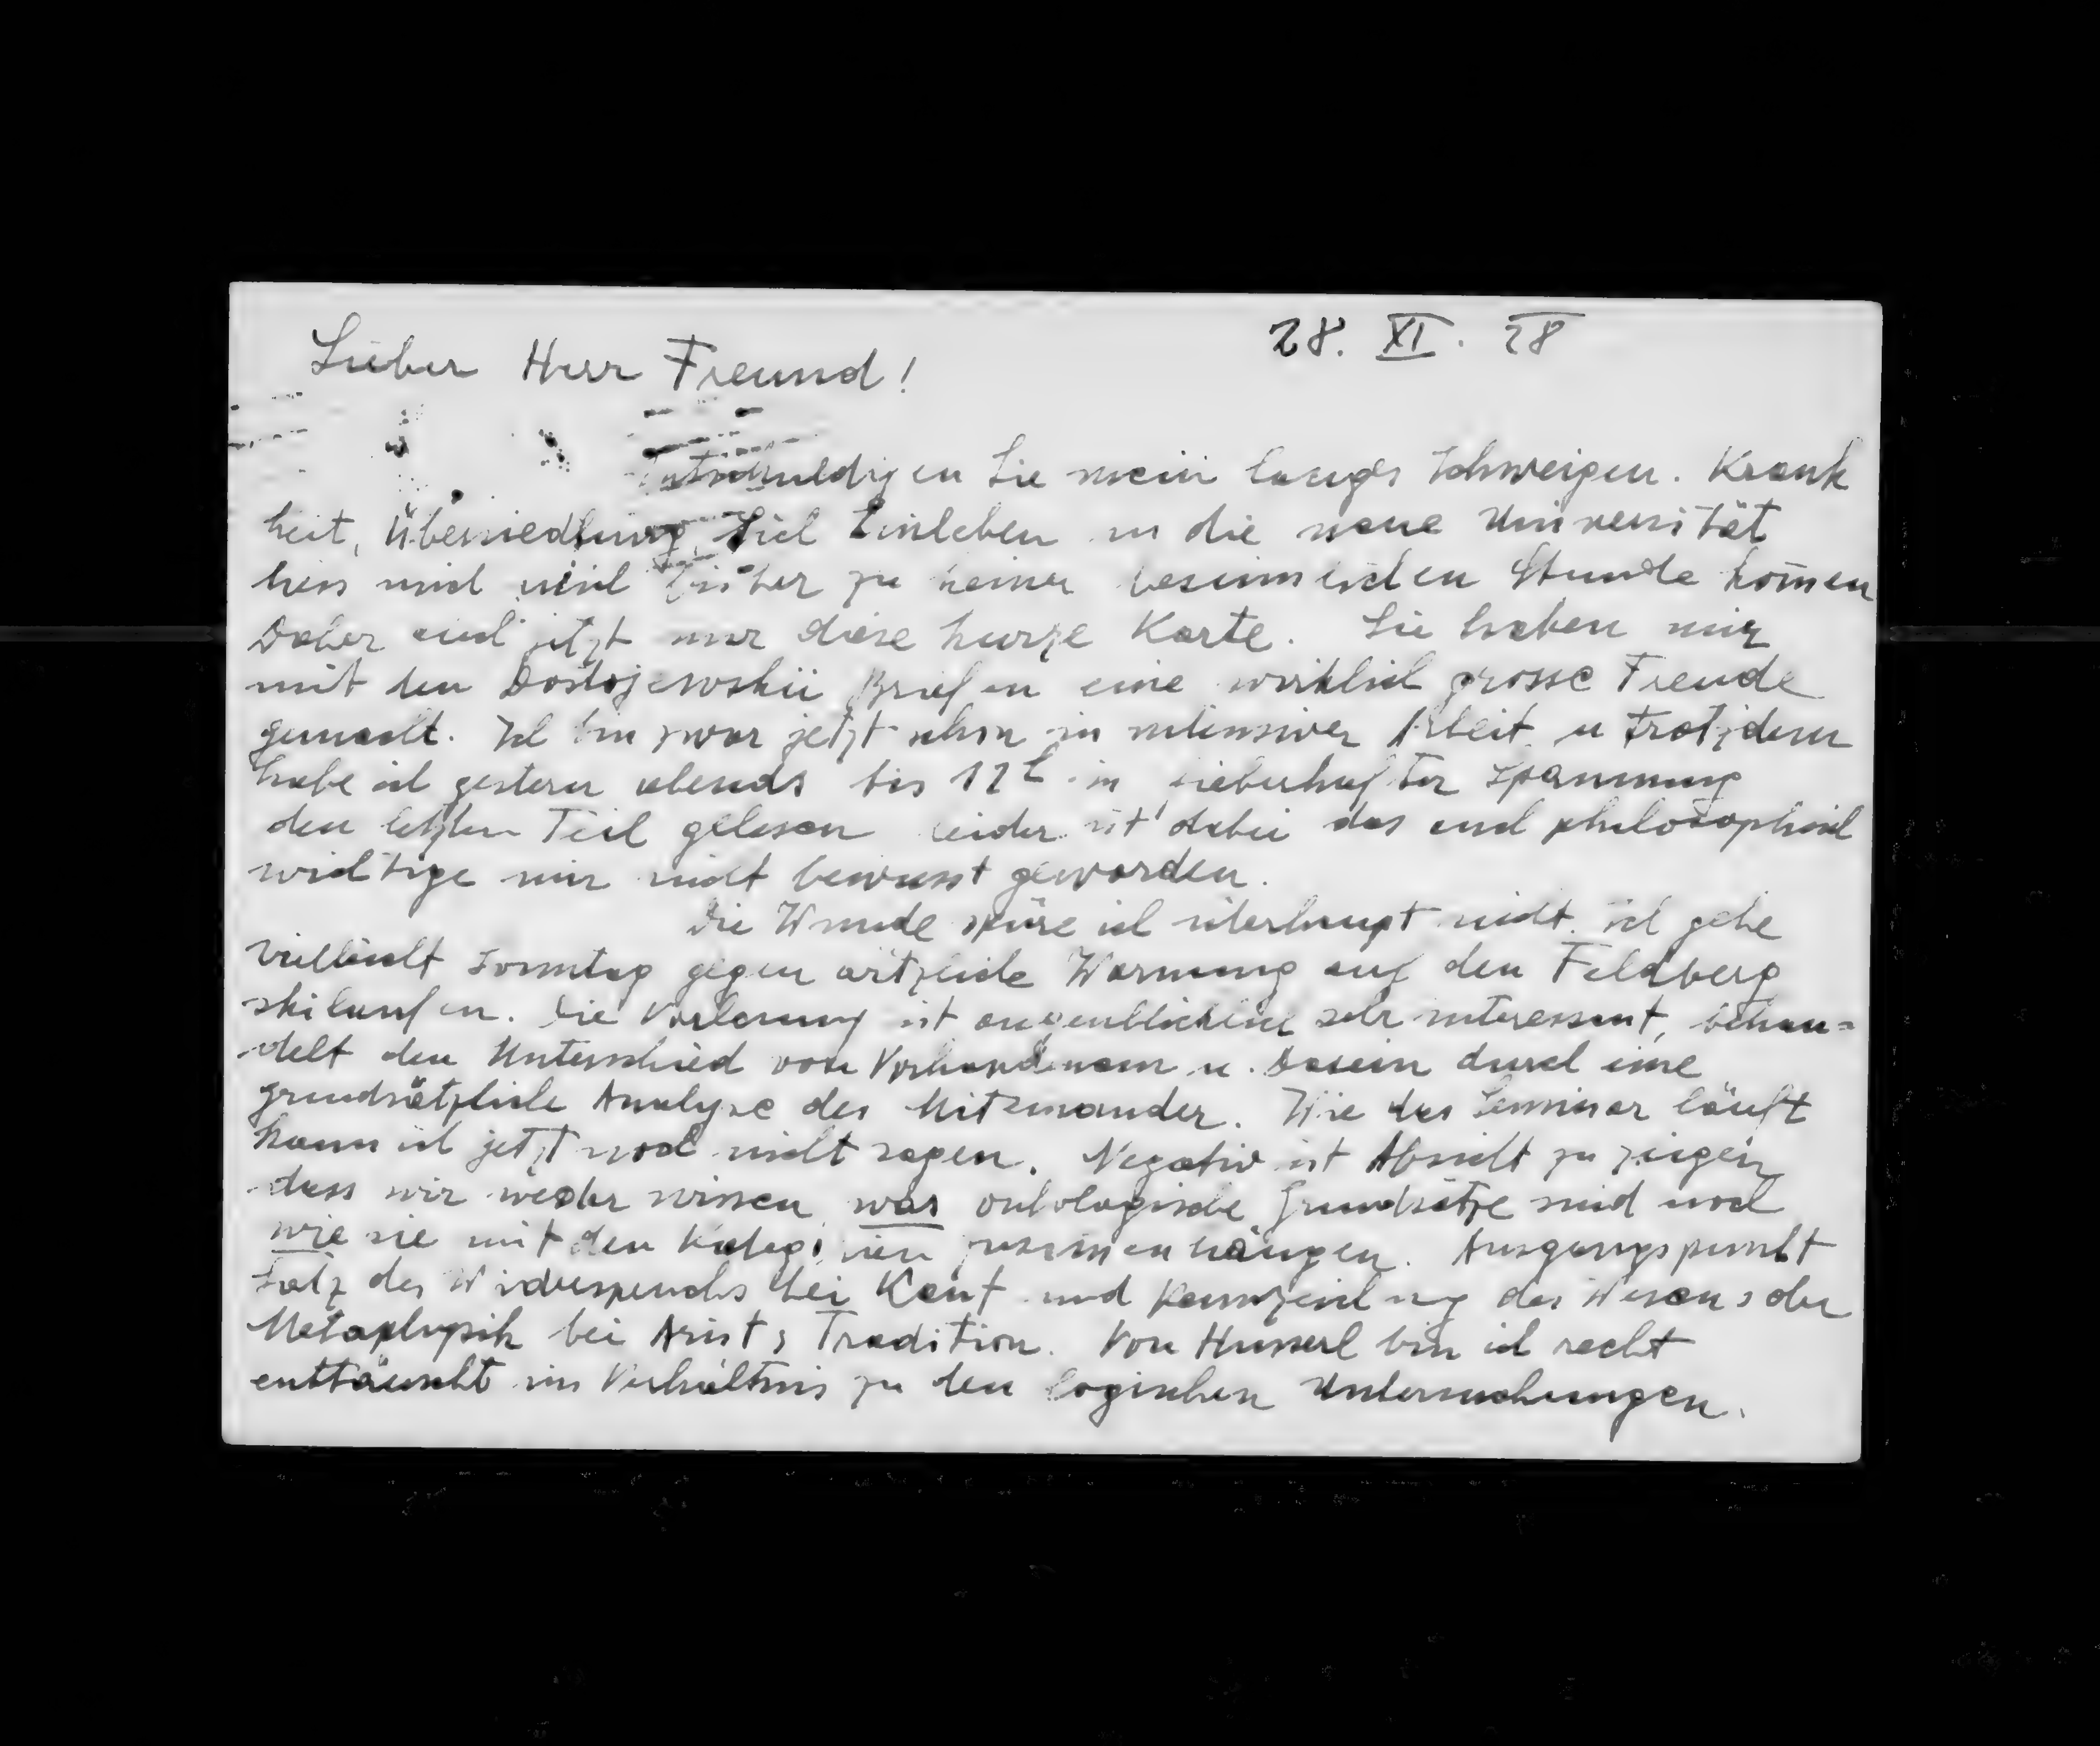 28. XI. 28
Lieber Herr Freund!
Entschuldigen Sie mein langes Schweigen. Krank
heit, Übersiedlung, Sich Einleben in die neue Universität
liess mich bisher zu keiner besinnlichen Stunde kommen
Daher auch jetzt nur diese kurze Karte. Sie haben mir
mit den Dostojewskii Briefen eine wirklich grosse Freude
gemacht. Ich bin zwar jetzt schon in intensiver Arbeit u trotzdem
habe ich gestern abends bis 12h in fieberhafter Spannung
den letzten Teil gelesen leider ist dabei das auch philosophisch
wichtige mir nicht bewusst geworden.
Die Wunde spüre ich überhaupt nicht. ich gehe
vielleicht Sonntag gegen ärtzliche Warnung auf den Feldberg
skilaufen. Die Vorlesung ist augenblicklich sehr interessant, behan=
delt den Unterschied von Vorhandensein u. Dasein durch eine
grundsätzliche Analyse des Miteinander. Wie das Seminar läuft
kann ich jetzt noch nicht sagen. Negativ ist Absicht zu zeigen
dass wir weder wissen was ontologische Grundsätze sind noch
wie sie mit den Kategorien zusammenhängen. Ausgangspunkt
Satz des Widerspruchs bei Kant und Kennzeichnung des Wesens der
Metaphysik bei Arist's Tradition. Von Husserl bin ich recht
enttäuscht im Verhältnis zu den logischen Untersuchungen.